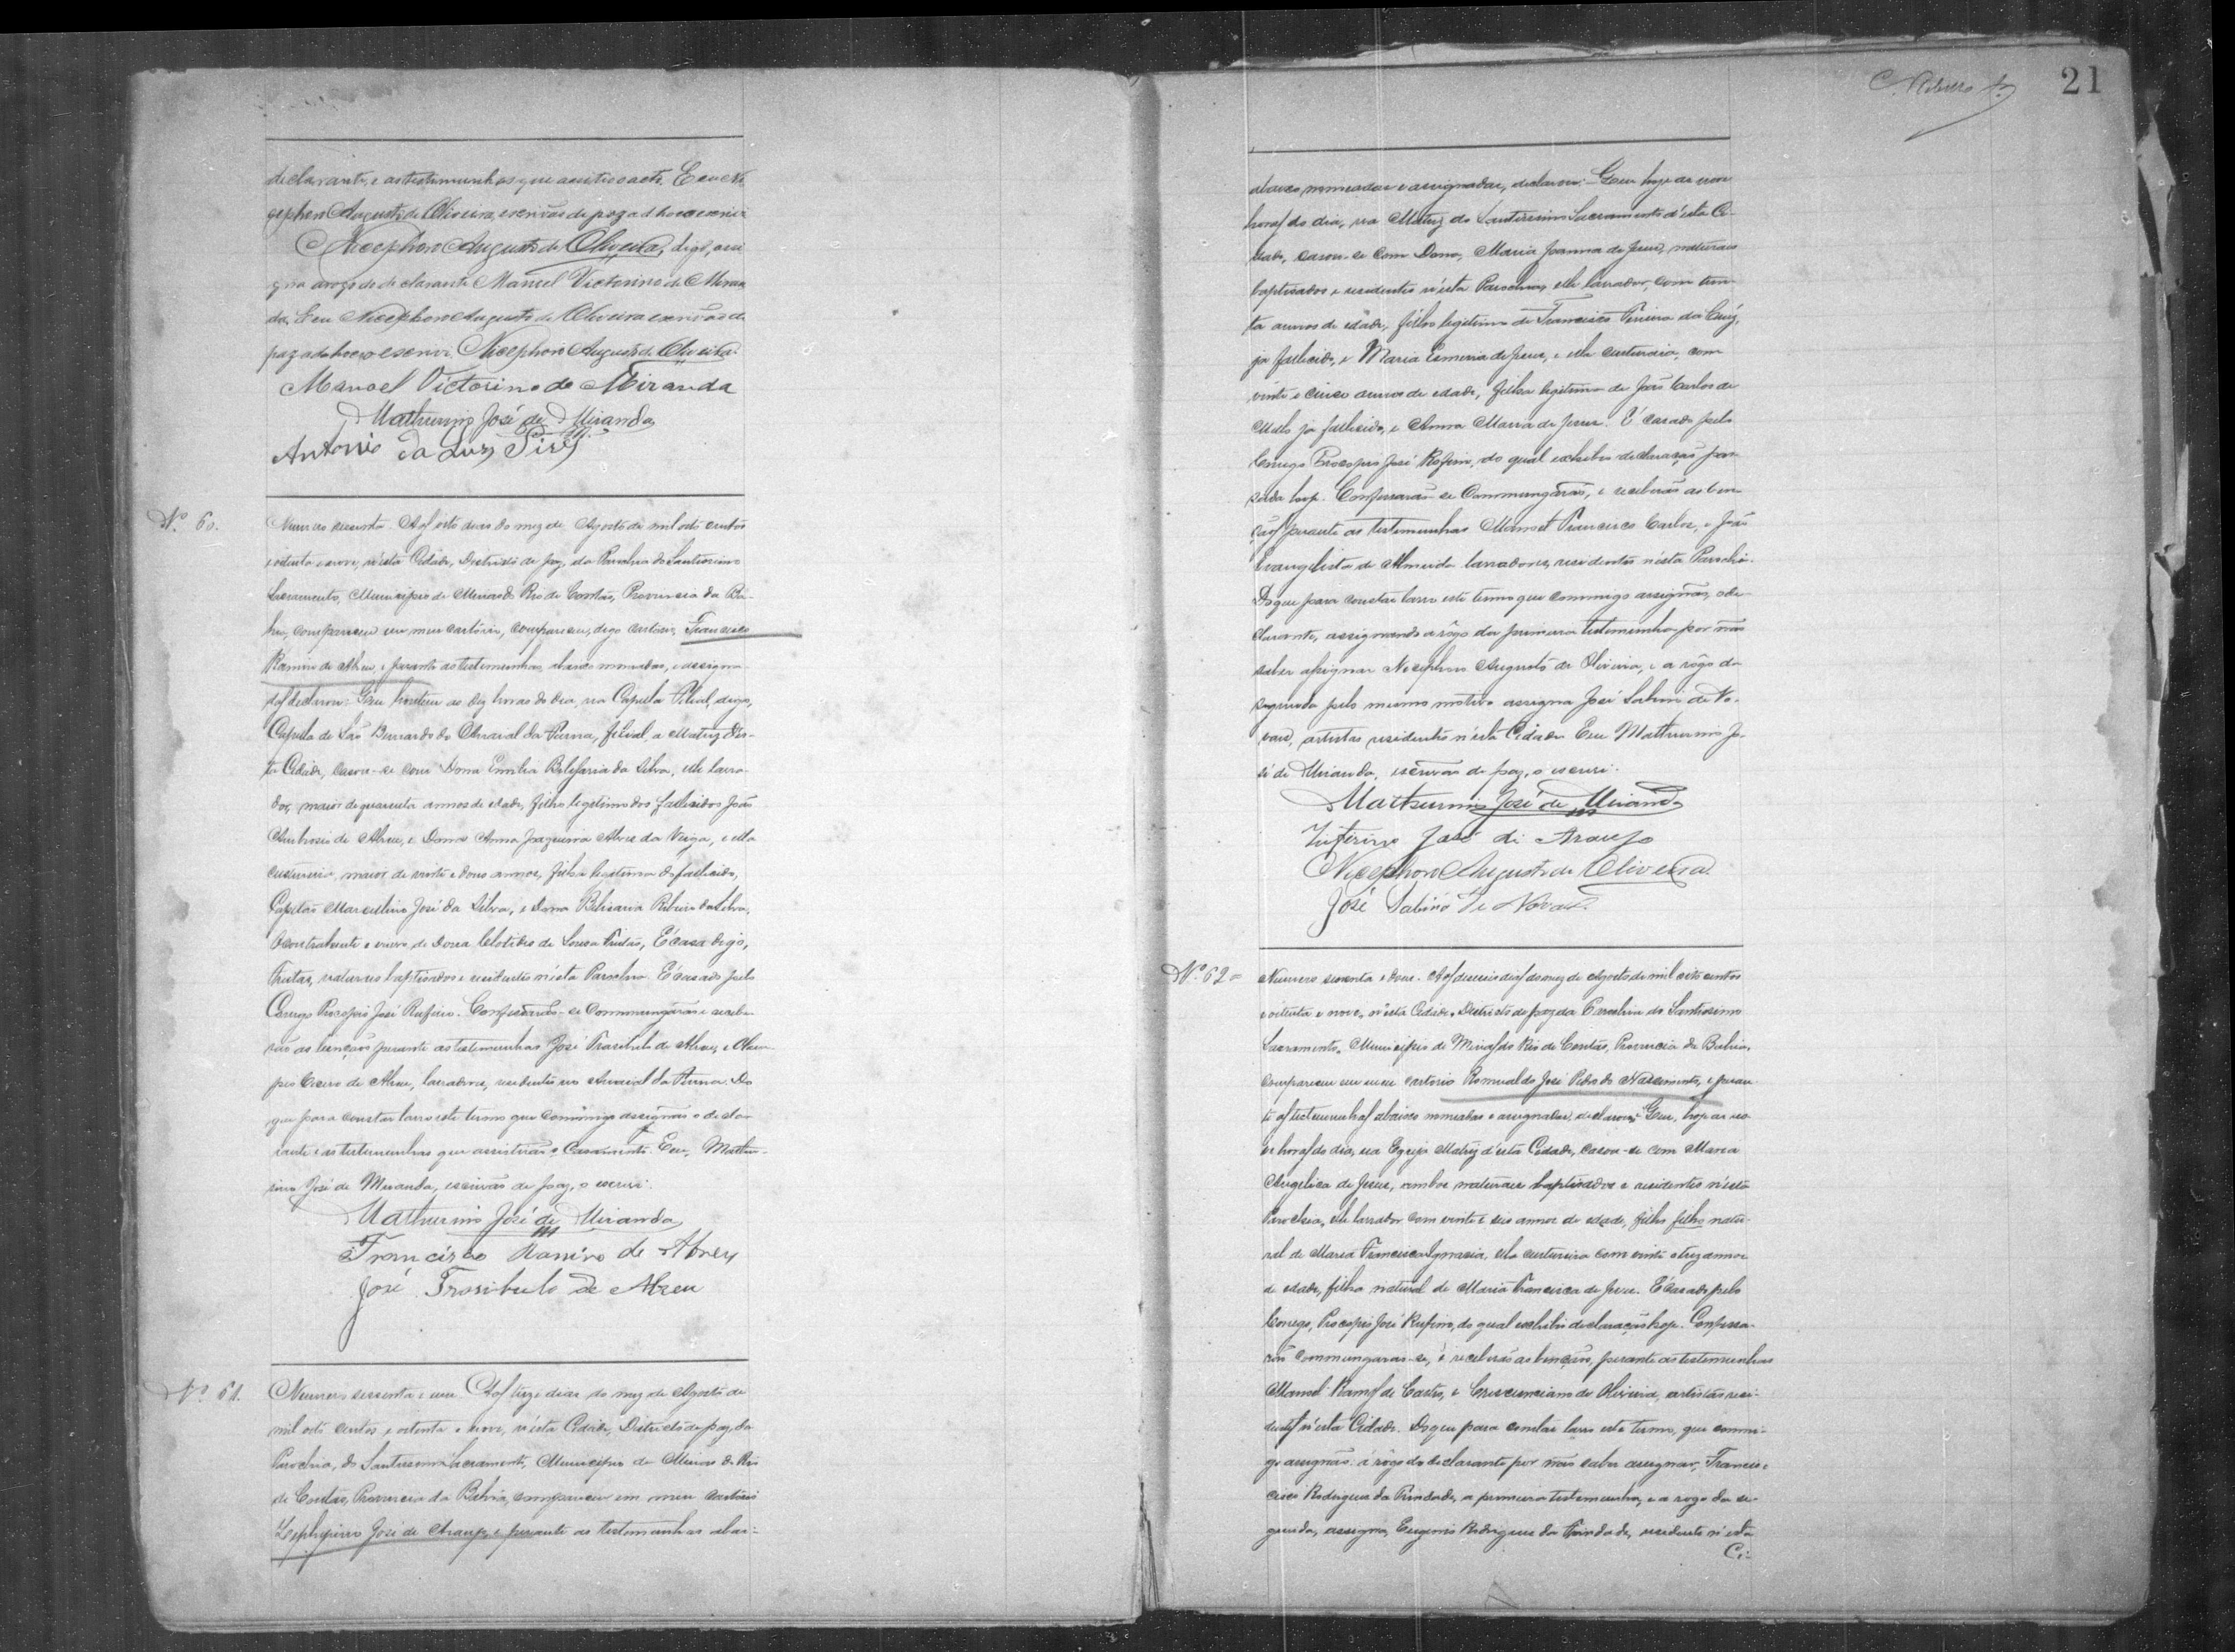 declarante, e as testemunhas que assitio o acto. E eu Ni
cephoro Augusto de Oliveira, escrivão de paz ad hoc o escrivi
Nicephoro Augusto de Oliveira, digo, assi
gna arogo do declarante Manoel Victorino de Miran
da. Eu Nicephoro Augusto de Oliveira escrivão de
paz adehoc o escrivi. Nicephoro Augusto de Oliveira.
Manoel Victorino de Miranda
Mathurino José de Miranda
Antonio da Luz Pires
Nº 60.
Numero sessenta. Aos oito dias do mez de Agosto de mil oito centos
e oitenta e nove, n'esta Cidade, Districto de paz, da Parochia do Santissimo
Sacramento, Municipio de Minas do Rio de Contas, Provincia da Ba-
hia, compareceu em meu cartorio, compareceu, digo cartorio, Francisco
Ramiro de Abreu, e perante as testemunhas abaixo nomeadas, e assigna-
das declarou: Que hontem as dez horas do dia, na Capella Filial, digo,
Capella de São Bernardo do Arraial da Furna, filial a Matriz d'es-
ta Cidade, casou-se com Dona Emilia Belisaria da Silva, elle lavra-
dor, maior de quarenta annos de idade, filho legitimo dos fallecidos João
Ambrosio de Abreu, e Dona Anna Joaquina Alves da Veiga, e ella
custureira, maior de vinte e dous annos, filha legitima do fallecido,
Capitão Marcellino José da Silva, e Dona Belisaria Ribeiro da Silva,
O contrahente é viuvo de Dona Clotildes de Souza Freitas, É casa digo,
Freitas, naturaes baptisados e residentes n'esta Parochia. É casado pelo
Conego Procopio José Rufino. Confessarão-se Commungarão e recebe-
rão as bençãos perante as testemunhas José Trasibulo de Abreu, e Olim-
pio Cicero de Abreu, lavradores, residentes no Arraial da Furna. Do
que para constar lavro este termo que commigo assignão o decla-
rante e as testemunhas que assistirão o Casamento. Eu, Mathu-
rino José de Miranda, escrivão de paz, o escrivi.
Mathurino José de Miranda
Francisco Ramiro de Abreu
José Trasibulo de Abreu
Nº 61.
Numero sessenta e um. Aos treze dias do mez de Agosto de
mil oito centos e oitenta e nove, n'esta Cidade, Districto de paz, da
Parochia, do Santissimo Sacramento, Municipio de Minas do Rio
de Contas, Provincia da Bahia, compareceu em meu cartorio
José de Araujo, e perante as testemunhas abai-
21
abaixo nomeadas e assignadas, declarou: Que hoje as nove
horas do dia, na Matriz do Santissimo Sacramento d'esta Ci-
dade, casou-se com Dona, Maria Joanna de Jesus, naturaes
baptisados e residentes n'esta Parochia, elle lavrador, com trin-
ta annos de edade, filho legitimo de Francisco Pereira da Cruz,
ja fallecido, e Maria Esmeria de Jesus, e ella custureira, com
vinte e cinco annos de edade, filha legitima de João Carlos de
Mello ja fallecido, e Anna Maria de Jesus. É casado pelo
Conego Procopio José Rofino, do qual exhibio declaração pas-
sada hoje. Confessarão-se Commungarão, e receberão as ben-
çãos perante as testemunhas Manoel Francisco Carlos, e João
Evangelista de Almeida lavradores, residentes n'esta Parochia.
Do que para constar lavro este termo que commigo assignão, o de-
clarante, assignando a rôgo da primeira testemunha por não
saber assignar Nicephoro Augusto de Oliveira, e a rôgo da
segunda pelo mesmo motivo assigna José Sabino de No-
vaes, artistas residentes n'esta Cidade. Eu Mathurino Jo-
sé de Miranda, escrivão de paz, o escrivi.
Mathurino José de Miranda
José de Araujo
Nicephoro Augusto de Oliveira
José Sabino de Novaes.
Nº 62=
Numero sessenta e dous. Aos dias do mez de Agosto de mil oito centos
e oitenta e nove, n'esta Cidade, Districto de paz da Parochia do Santissimo
Sacramento, Municipio de Minas do Rio de Contas, Provincia da Bahia,
compareceu em meu cartorio Romualdo José Pedro do Nascimento, e peran-
te as testemunhas abaixo nomeadas e assignadas, declarou: Que, hoje as no-
ve horas do dia, na Egreja Matriz d'esta Cidade, casou-se com Maria
Angelica de Jesus, ambos naturaes baptisados e residentes n'esta
Parochia, elle lavrador com vinte e seis annos de edade, filho filho natu-
ral de Maria Francisca Ignacia, ella custureira com vinte e trez annos
de edade, filha natural de Maria Francisca de Jesus. É casado pelo
Conego, Procopio José Rufino, do qual exhibio declaração hoje. Confessa-
rão commungarão-se, e receberão as bençãos, perante as testemunhas
Manoel Ramos de Castro, e Crescenciano de Oliveira, artistas resi-
dentes n'esta Cidade. Do que para constar lavro este termo, que commi-
go assignão. á rôgo do declarante por não saber assignar, Francis-
cisco Rodrigues da Trindade, a primeira testemunha, e a rogo da se-
gunda, assigna, Eugenio Rodrigues da Trindade, residente n'esta
Ci-